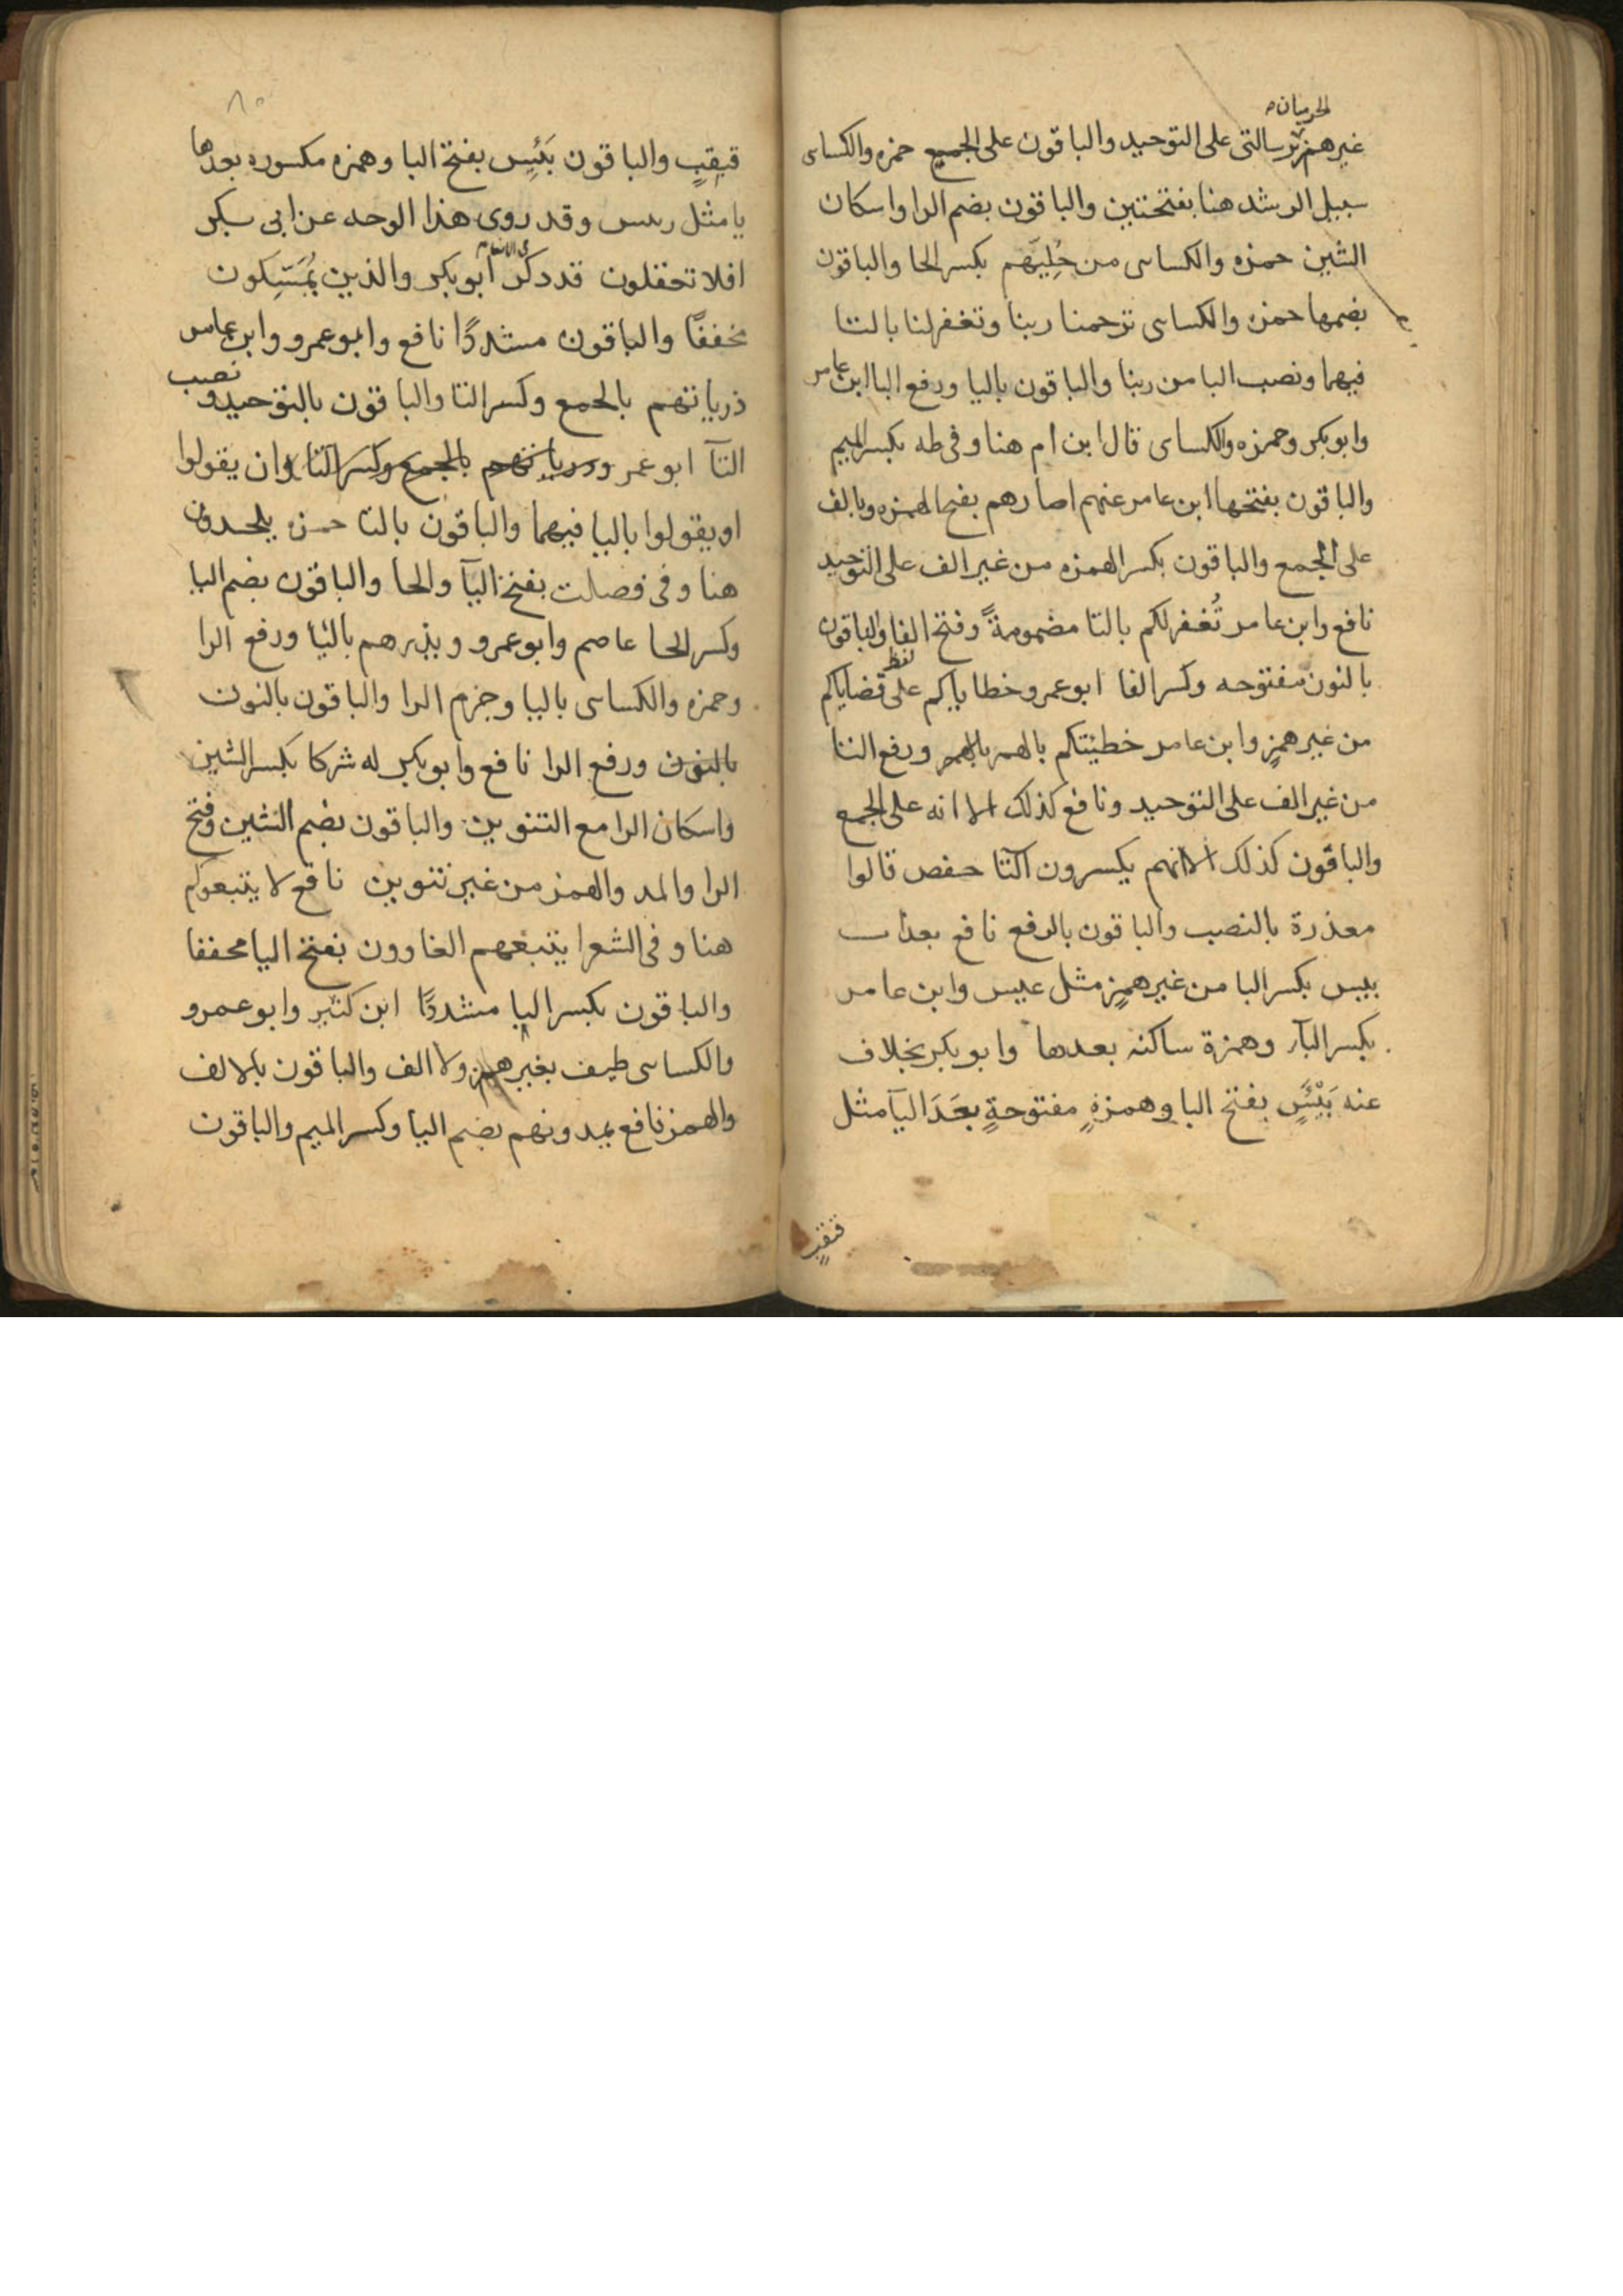 الحرميان
غير همز برسالتى على التوحيد والباقون على الجميع حمزه والكساى
سبيل الرشد هنا بفتحتين والباقون بضم الرا واسكان
الشين حمزه والكساى من حُلِيّهم بكسر الحا والباقون
بضمها حمزه والكساى ترحمنا ربنا وتغفر لنا بالتا
فيهما ونصب البا من ربنا والباقون باليا ورفع البا ابن عامر
وابو بكر وحمزه والكساى قال ابن ام هنا وفى طه بكسر الميم
والباقون بفتحها ابن عامر عنهم اصارهم بفتح الهمزه وبالف
على الجمع والباقون بكسر الهمزه من غير الف على التوحيد
نافع وابن عامر تُغفر لكم بالتا مضمومةً وفتح الفا والباقون
بالنون مفتوحه وكسر الفا ابو عمرو خطاياكم على لفظ قضاياكم
من غير همزٍ وابن عامر خطيئتكم بالهمز ورفع التا
من غير الف على التوحيد ونافع كذلك الا انه على الجمع
والباقون كذلك الا انهم يكسرون التا حفص قالوا
معذرة بالنصب والباقون بالرفع نافع بعذاب
بيس بكسر البا من غير همزٍ مثل عيس وابن عامر
بكسر البآ وهمزة ساكنه بعدها وابو بكر بخلاف
عنه بَيْئَسٍ بفتح البا وهمزةٍ مفتوحةٍ بعَدَ اليآ مثل
قيقبٍ
٨٥
قيقبٍ والباقون بَئِيس بفتح البا وهمزه مكسوره بعدها
يا مثل رييس وقد روى هذا الوجه عن ابى بكر
افلا تعقلون قد ذكر فى الانعام ابو بكر والذين يُمْسِكون
مخففًا والباقون مشددًا نافع وابو عمرو وابن عامر
ذرياتهم بالجمع وكسر التا والباقون بالتوحيد ونصب
التآ ابو عمرو ذرياتهم بالجمع وكسر التا وان يقولوا
او يقولوا باليا فيهما والباقون بالتا حمزه يلحدون
هنا وفى فصلت بفتح اليآ والحا والباقون بضم اليا
وكسر الحا عاصم وابو عمرو ويذرهم باليا ورفع الرا
وحمزه والكساى باليا وجزم الرا والباقون بالنون
بالنون ورفع الرا نافع وابو بكر له شركا بكسر الشين
واسكان الرا مع التنوين والباقون بضم الشين وفتح
الرا والمد والهمز من غير تنوين نافع لا يتبعوكم
هنا وفى الشعرا يتبعهم الغاوون بفتح البا مخففا
والباقون بكسر البا مشددًا ابن كثير وابو عمرو
والكساى طيف بغير همز ولا الف والباقون بالالف
والهمز نافع يمدونهم بضم اليا وكسر الميم والباقون